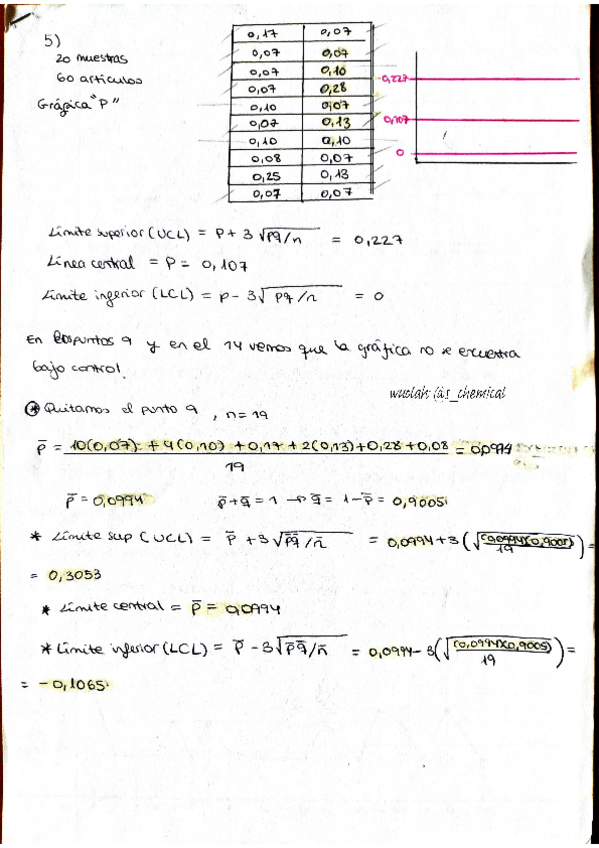 5)
20 muestras
60 artículos
Gráfica "P"
0,17 0,07
0,07 0,07
0,07 0,10
0,07 0,28
0,10 0,07
0,07 0,13
0,10 0,10
0,08 0,07
0,25 0,13
0,07 0,07
0,227
0,107
0
Límite superior (UCL) = P + 3 √pq/n = 0,227
Línea central = P = 0,107
Límite inferior (LCL) = p - 3√pq/n = 0
En los puntos 9 y en el 14 vemos que la gráfica no se encuentra
bajo control.
wuolah: @s_chemical
* Quitamos el punto 9, n = 19
p̄ = 10(0,07) + 4(0,10) + 0,17 + 2(0,13) + 0,28 + 0,08 / 19 = 0,0994
p̄ = 0,0994 p̄ + q̄ = 1 → q̄ = 1 - p̄ = 0,9005
* Límite sup (UCL) = p̄ + 3√p̄q̄/n̄ = 0,0994 + 3(√(0,0994)(0,9005)/19) =
= 0,3053
* Límite central = p̄ = 0,0994
* Límite inferior (LCL) = p̄ - 3√p̄q̄/n̄ = 0,0994 - 3(√(0,0994)(0,9005)/19) =
= -0,1065